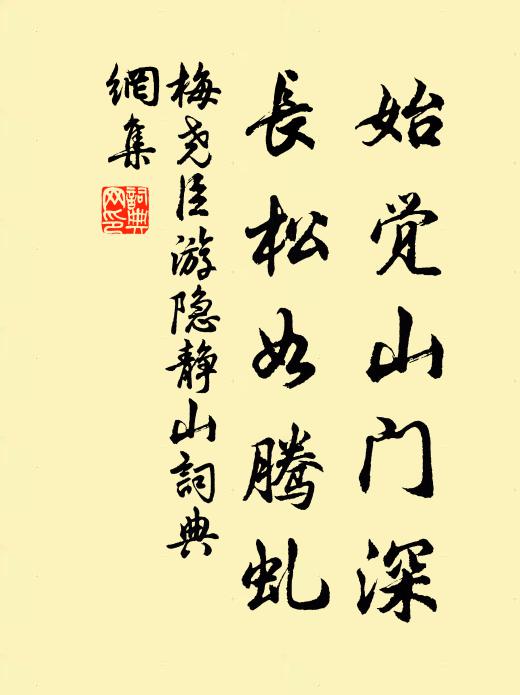 始觉山门深
長松如腾虬
梅尧臣游隐静山詞典
網集
詞典
网印